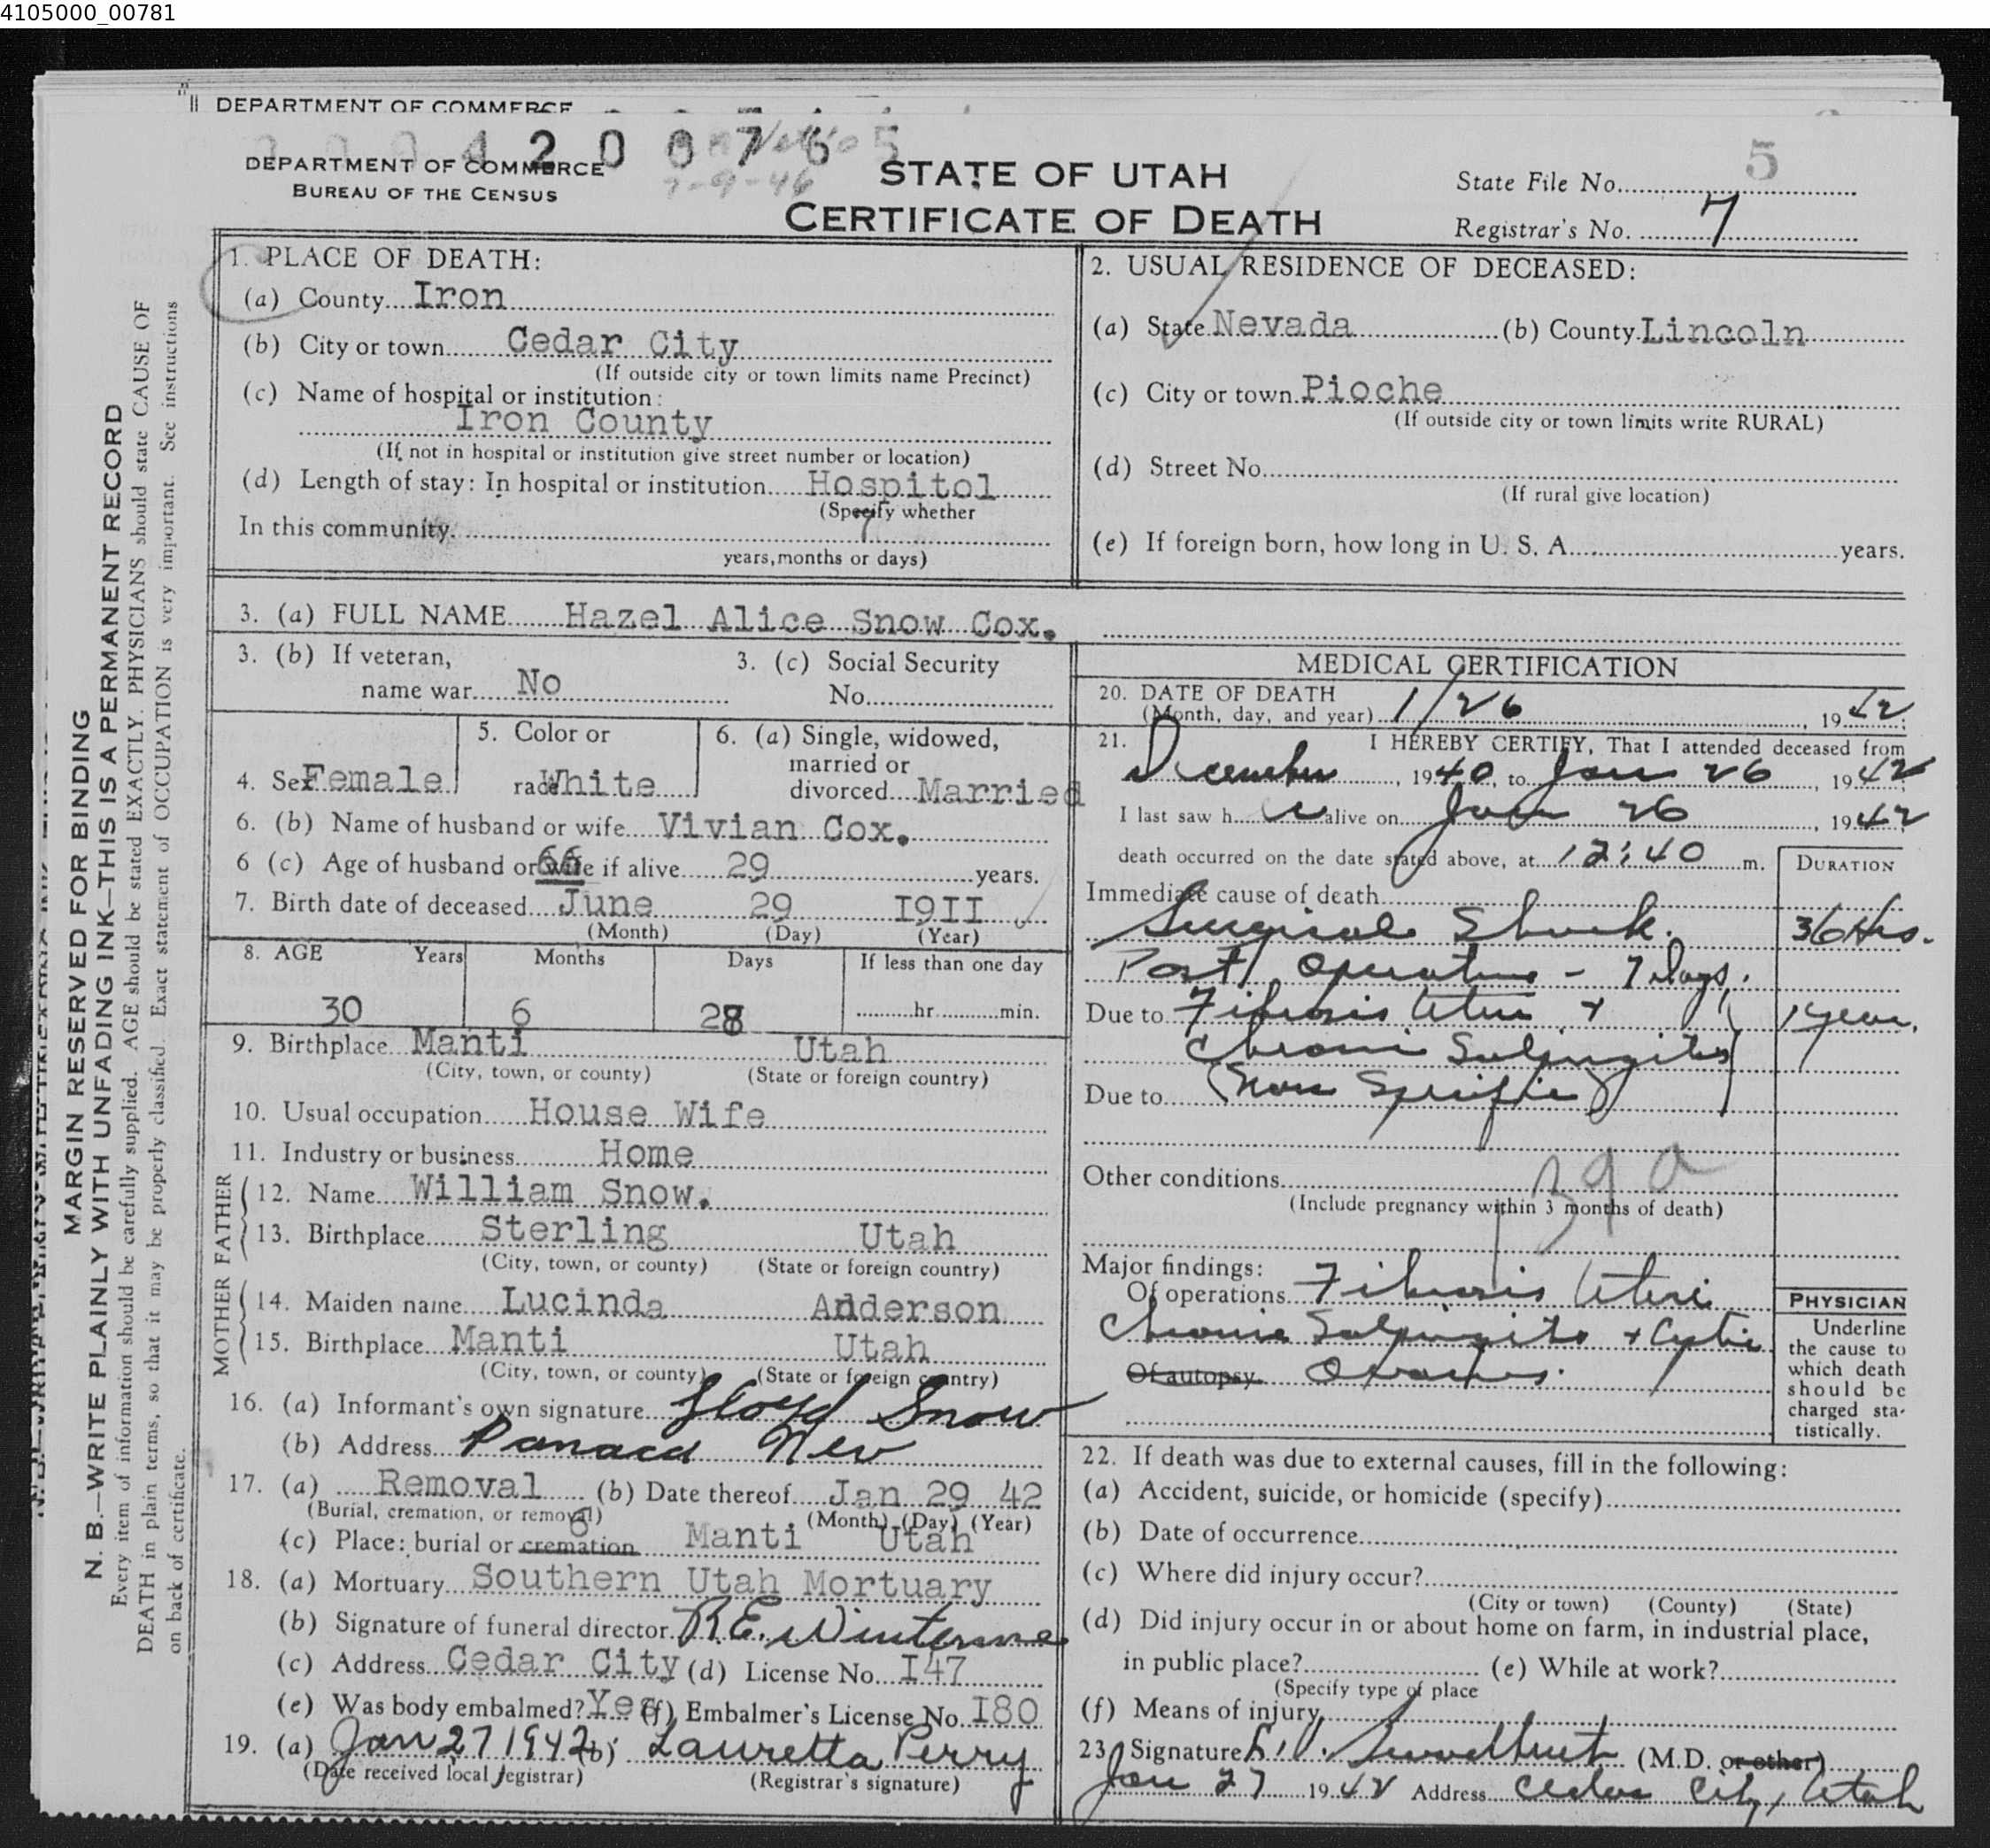 4105000_00781
DEPARTMENT OF COMMERCE
4 2 0 0 7 6 5
7-9-46
5
DEPARTMENT OF COMMERCE
BUREAU OF THE CENSUS
STATE OF UTAH
CERTIFICATE OF DEATH
State File No.
Registrar's No. 7
MARGIN RESERVED FOR BINDING
N. B.—WRITE PLAINLY WITH UNFADING INK—THIS IS A PERMANENT RECORD
Every item of information should be carefully supplied. AGE should be stated EXACTLY. PHYSICIANS should state CAUSE OF
DEATH in plain terms, so that it may be properly classified. Exact statement of OCCUPATION is very important. See instructions
on back of certificate.
1. PLACE OF DEATH:
(a) County Iron
(b) City or town Cedar City
(If outside city or town limits name Precinct)
(c) Name of hospital or institution:
Iron County
(If not in hospital or institution give street number or location)
(d) Length of stay: In hospital or institution Hospitol
(Specify whether
In this community 7
years, months or days)
2. USUAL RESIDENCE OF DECEASED:
(a) State Nevada (b) County Lincoln
(c) City or town Pioche
(If outside city or town limits write RURAL)
(d) Street No.
(If rural give location)
(e) If foreign born, how long in U. S. A. years.
3. (a) FULL NAME Hazel Alice Snow Cox.
3. (b) If veteran,
name war No
3. (c) Social Security
No.
4. Sex Female
5. Color or
race White
6. (a) Single, widowed,
married or
divorced Married
6. (b) Name of husband or wife Vivian Cox.
6 (c) Age of husband or wife if alive 29 years.
7. Birth date of deceased June 29 I9II
(Month) (Day) (Year)
8. AGE Years Months Days If less than one day
30 6 28 hr. min.
9. Birthplace Manti Utah
(City, town, or county) (State or foreign country)
10. Usual occupation House Wife
11. Industry or business Home
FATHER
12. Name William Snow.
13. Birthplace Sterling Utah
(City, town, or county) (State or foreign country)
MOTHER
14. Maiden name Lucinda Anderson
15. Birthplace Manti Utah
(City, town, or county) (State or foreign country)
16. (a) Informant's own signature Lloyd Snow
(b) Address Panaca Nev
17. (a) Removal (b) Date thereof Jan 29 42
(Burial, cremation, or removal) (Month) (Day) (Year)
(c) Place: burial or cremation Manti Utah
18. (a) Mortuary Southern Utah Mortuary
(b) Signature of funeral director R.E. Winterose
(c) Address Cedar City (d) License No. I47
(e) Was body embalmed? Yes (f) Embalmer's License No. I80
19. (a) Jan 27 1942 (b) Lauretta Perry
(Date received local registrar) (Registrar's signature)
MEDICAL CERTIFICATION
20. DATE OF DEATH
(Month, day, and year) 1/26, 1942
21. I HEREBY CERTIFY, That I attended deceased from
December, 1940, to Jan 26, 1942
I last saw h er alive on Jan 26, 1942
death occurred on the date stated above, at 12:40 m.
DURATION
Immediate cause of death
Surgical Shock. 36 Hrs.
Post Operative - 7 days.
Due to Fibrosis Uteri + 1 year.
Chronic Salpingitis
Due to (Non Specific)
139 a
Other conditions
(Include pregnancy within 3 months of death)
Major findings:
Of operations Fibrosis Uteri
Chronic Salpingitis + Cystic
Of autopsy Ovaries.
PHYSICIAN
Underline
the cause to
which death
should be
charged sta-
tistically.
22. If death was due to external causes, fill in the following:
(a) Accident, suicide, or homicide (specify)
(b) Date of occurrence
(c) Where did injury occur?
(City or town) (County) (State)
(d) Did injury occur in or about home on farm, in industrial place,
in public place? (e) While at work?
(Specify type of place
(f) Means of injury
23 Signature (M.D. or other)
Jan 27 1942 Address Cedar City, Utah